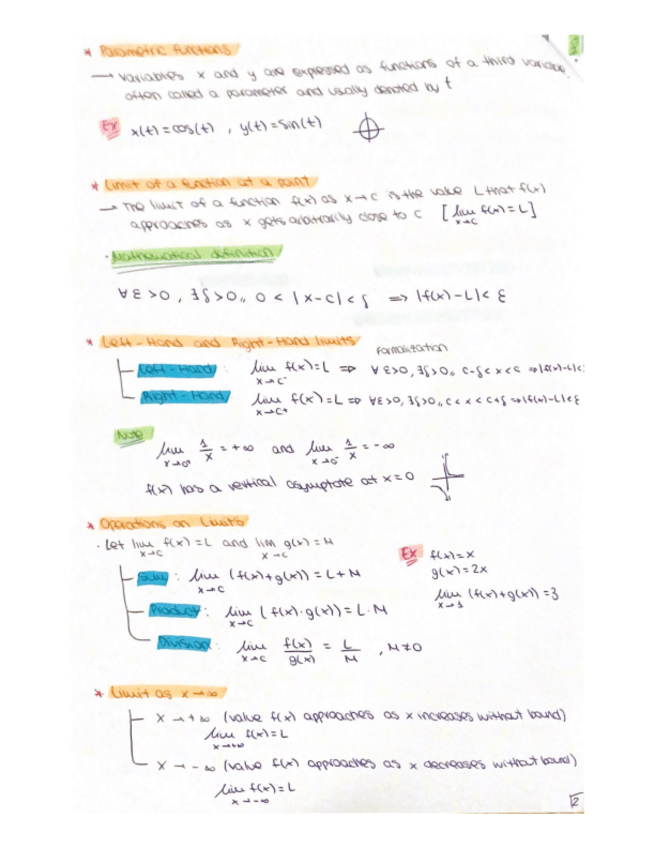 * Parametric functions
→ variables x and y are expressed as functions of a third variable,
often called a parameter and usually denoted by t
Ex x(t) = cos(t) , y(t) = sin(t)
* Limit of a function at a point
→ The limit of a function f(x) as x→c is the value L that f(x)
approaches as x gets arbitrarily close to c [lim x→c f(x) = L]
· Mathematical definition
∀ε>0, ∃δ>0,, 0 < |x-c| < δ ⇒ |f(x)-L| < ε
* Left-Hand and Right-Hand limits
Formalization
Left-Hand : lim x→c⁻ f(x) = L ⇒ ∀ε>0, ∃δ>0,, c-δ<x<c ⇒ |f(x)-L|<ε
Right-Hand : lim x→c+ f(x) = L ⇒ ∀ε>0, ∃δ>0,, c<x<c+δ ⇒ |f(x)-L|<ε
Note
lim x→0⁺ 1/x = +∞ and lim x→0⁻ 1/x = -∞
f(x) has a vertical asymptote at x=0
* Operations on Limits
· Let lim x→c f(x) = L and lim x→c g(x) = M
Sum : lim x→c (f(x)+g(x)) = L+M
Product : lim x→c (f(x)·g(x)) = L·M
Division : lim x→c f(x)/g(x) = L/M , M≠0
Ex f(x)=x
g(x)=2x
lim x→1 (f(x)+g(x)) = 3
* Limit as x→∞
x→+∞ (value f(x) approaches as x increases without bound)
lim x→+∞ f(x) = L
x→-∞ (value f(x) approaches as x decreases without bound)
lim x→-∞ f(x) = L
2